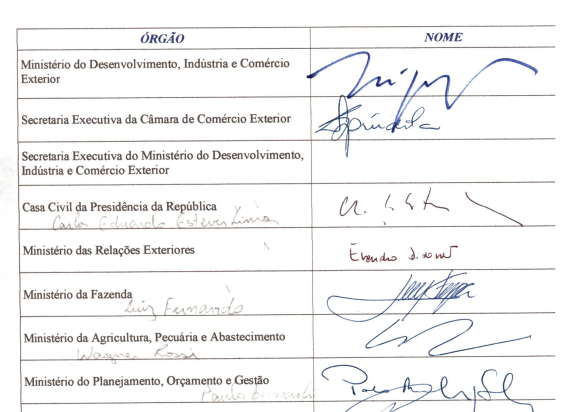 ÓRGÃO NOME
Ministério do Desenvolvimento, Indústria e Comércio
Exterior
Secretaria Executiva da Câmara de Comércio Exterior
Secretaria Executiva do Ministério do Desenvolvimento,
Indústria e Comércio Exterior
Casa Civil da Presidência da República
Carlos Eduardo Esteves Lima
Ministério das Relações Exteriores
Ministério da Fazenda
Luiz Fernando
Ministério da Agricultura, Pecuária e Abastecimento
Wagner Rossi
Ministério do Planejamento, Orçamento e Gestão
Paulo Bernardo